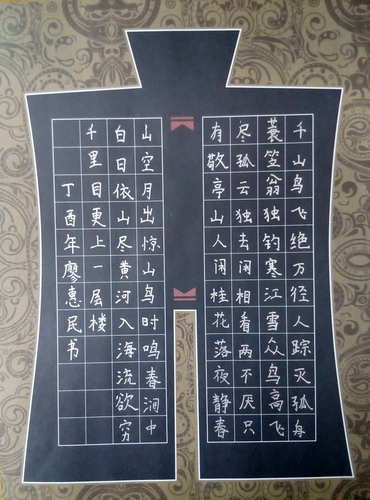 千山鸟飞绝万径人踪灭孤舟
蓑笠翁独钓寒江雪众鸟高飞
尽孤云独去闲相看两不厌只
有敬亭山人闲桂花落夜静春
山空月出惊山鸟时鸣春涧中
白日依山尽黄河入海流欲穷
千里目更上一层楼
丁酉年廖惠民书